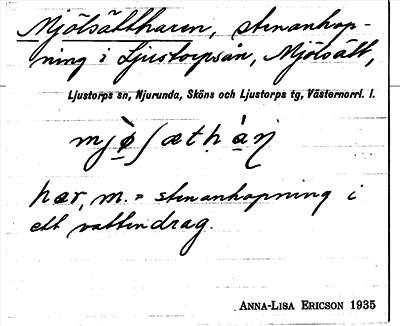 Mjölsättharen, stenanhop-
ning i Ljustorpsån, Mjölsätt,
Ljustorps sn, Njurunda, Sköns och Ljustorps tg, Västernorrl. l.
har, m. = stenanhopning i
ett vattendrag.
ANNA-LISA ERICSON 1935